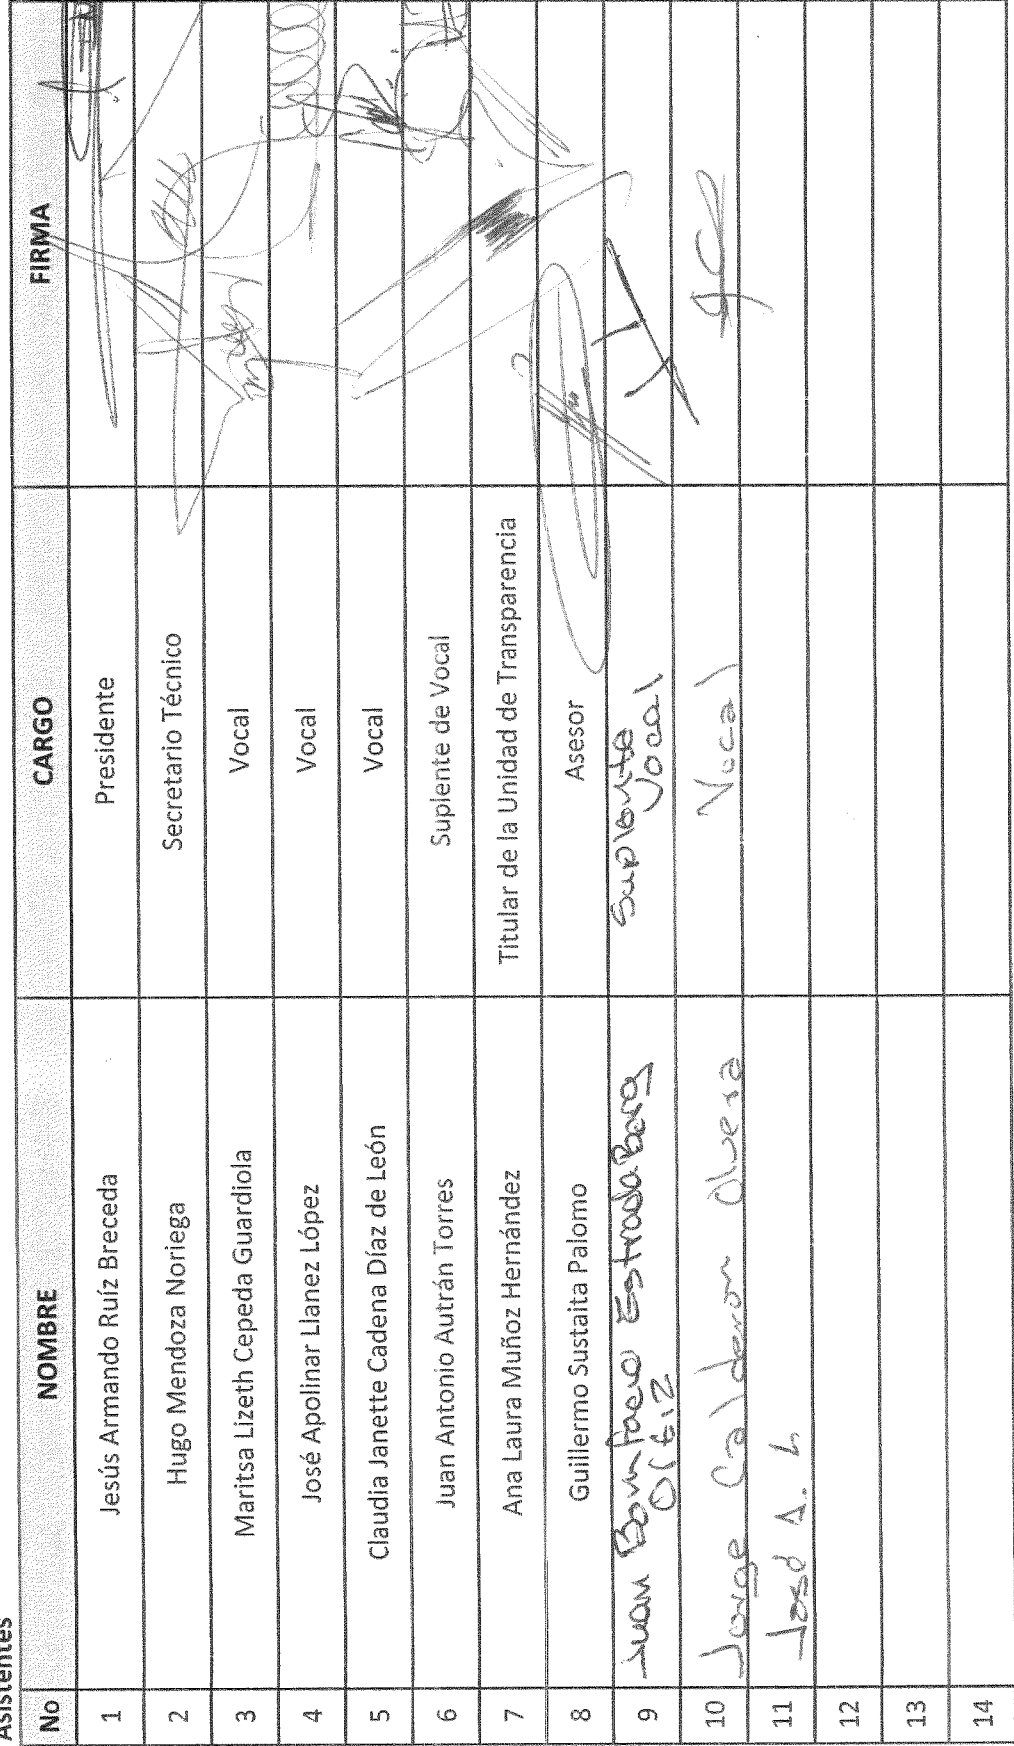 Asistentes
No NOMBRE CARGO FIRMA
1 Jesús Armando Ruíz Breceda Presidente
2 Hugo Mendoza Noriega Secretario Técnico
3 Maritsa Lizeth Cepeda Guardiola Vocal
4 José Apolinar Llanez López Vocal
5 Claudia Janette Cadena Díaz de León Vocal
6 Juan Antonio Autrán Torres Suplente de Vocal
7 Ana Laura Muñoz Hernández Titular de la Unidad de Transparencia
8 Guillermo Sustaita Palomo Asesor
9 Juan Bonifacio Estrada Ortiz Suplente Vocal
10 Jorge Calderon Olvera Vocal
11 José A. L
12
13
14